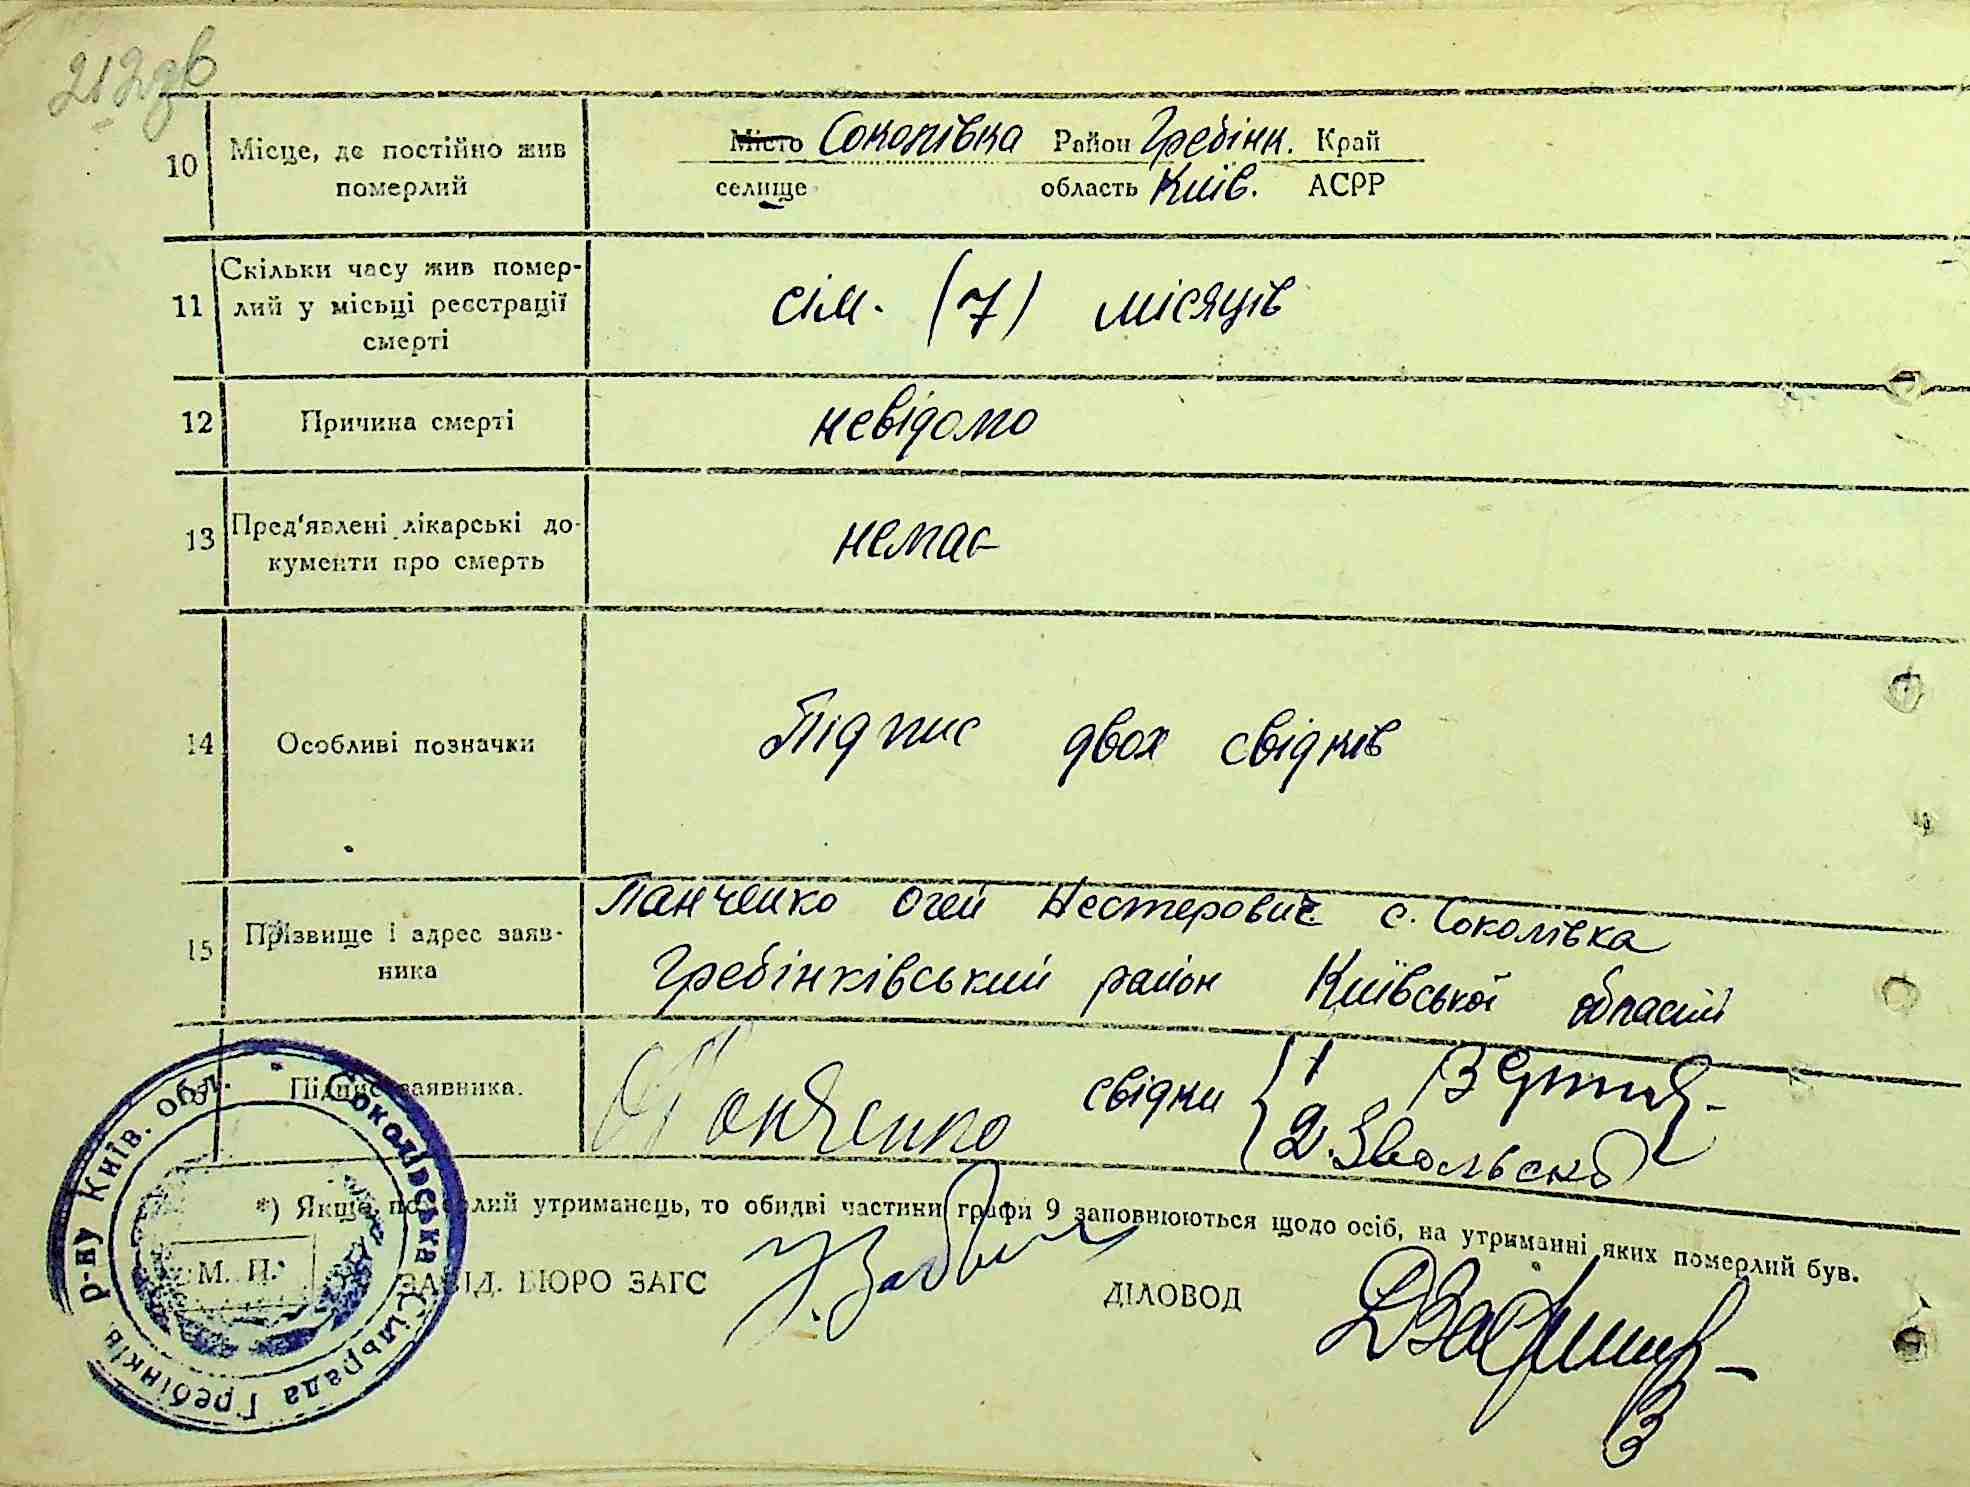 212зв
10 Місце, де постійно жив померлий
Місто Соколівка Район Гребінк. Край
селище область Київ. АСРР
11 Скільки часу жив помер-
лий у місьці реєстрації
смерті
сім. (7) місяців
12 Причина смерті
невідомо
13 Пред'явлені лікарські до-
кументи про смерть
немає
14 Особливі позначки
Підпис двох свідків
15 Прізвище і адрес заяв-
ника
Панченко Огей Нестерович с. Соколівка
Гребінківський район Київської області
Підпис заявника.
Панченко свідки 1
2.
*) Якщо померлий утриманець, то обидві частини графи 9 заповнюються щодо осіб, на утриманні яких померлий був.
М. П.
ЗАВІД. БЮРО ЗАГС
ДІЛОВОД
Соколівська Сільрада Гребінків. р-ну Київ. обл.